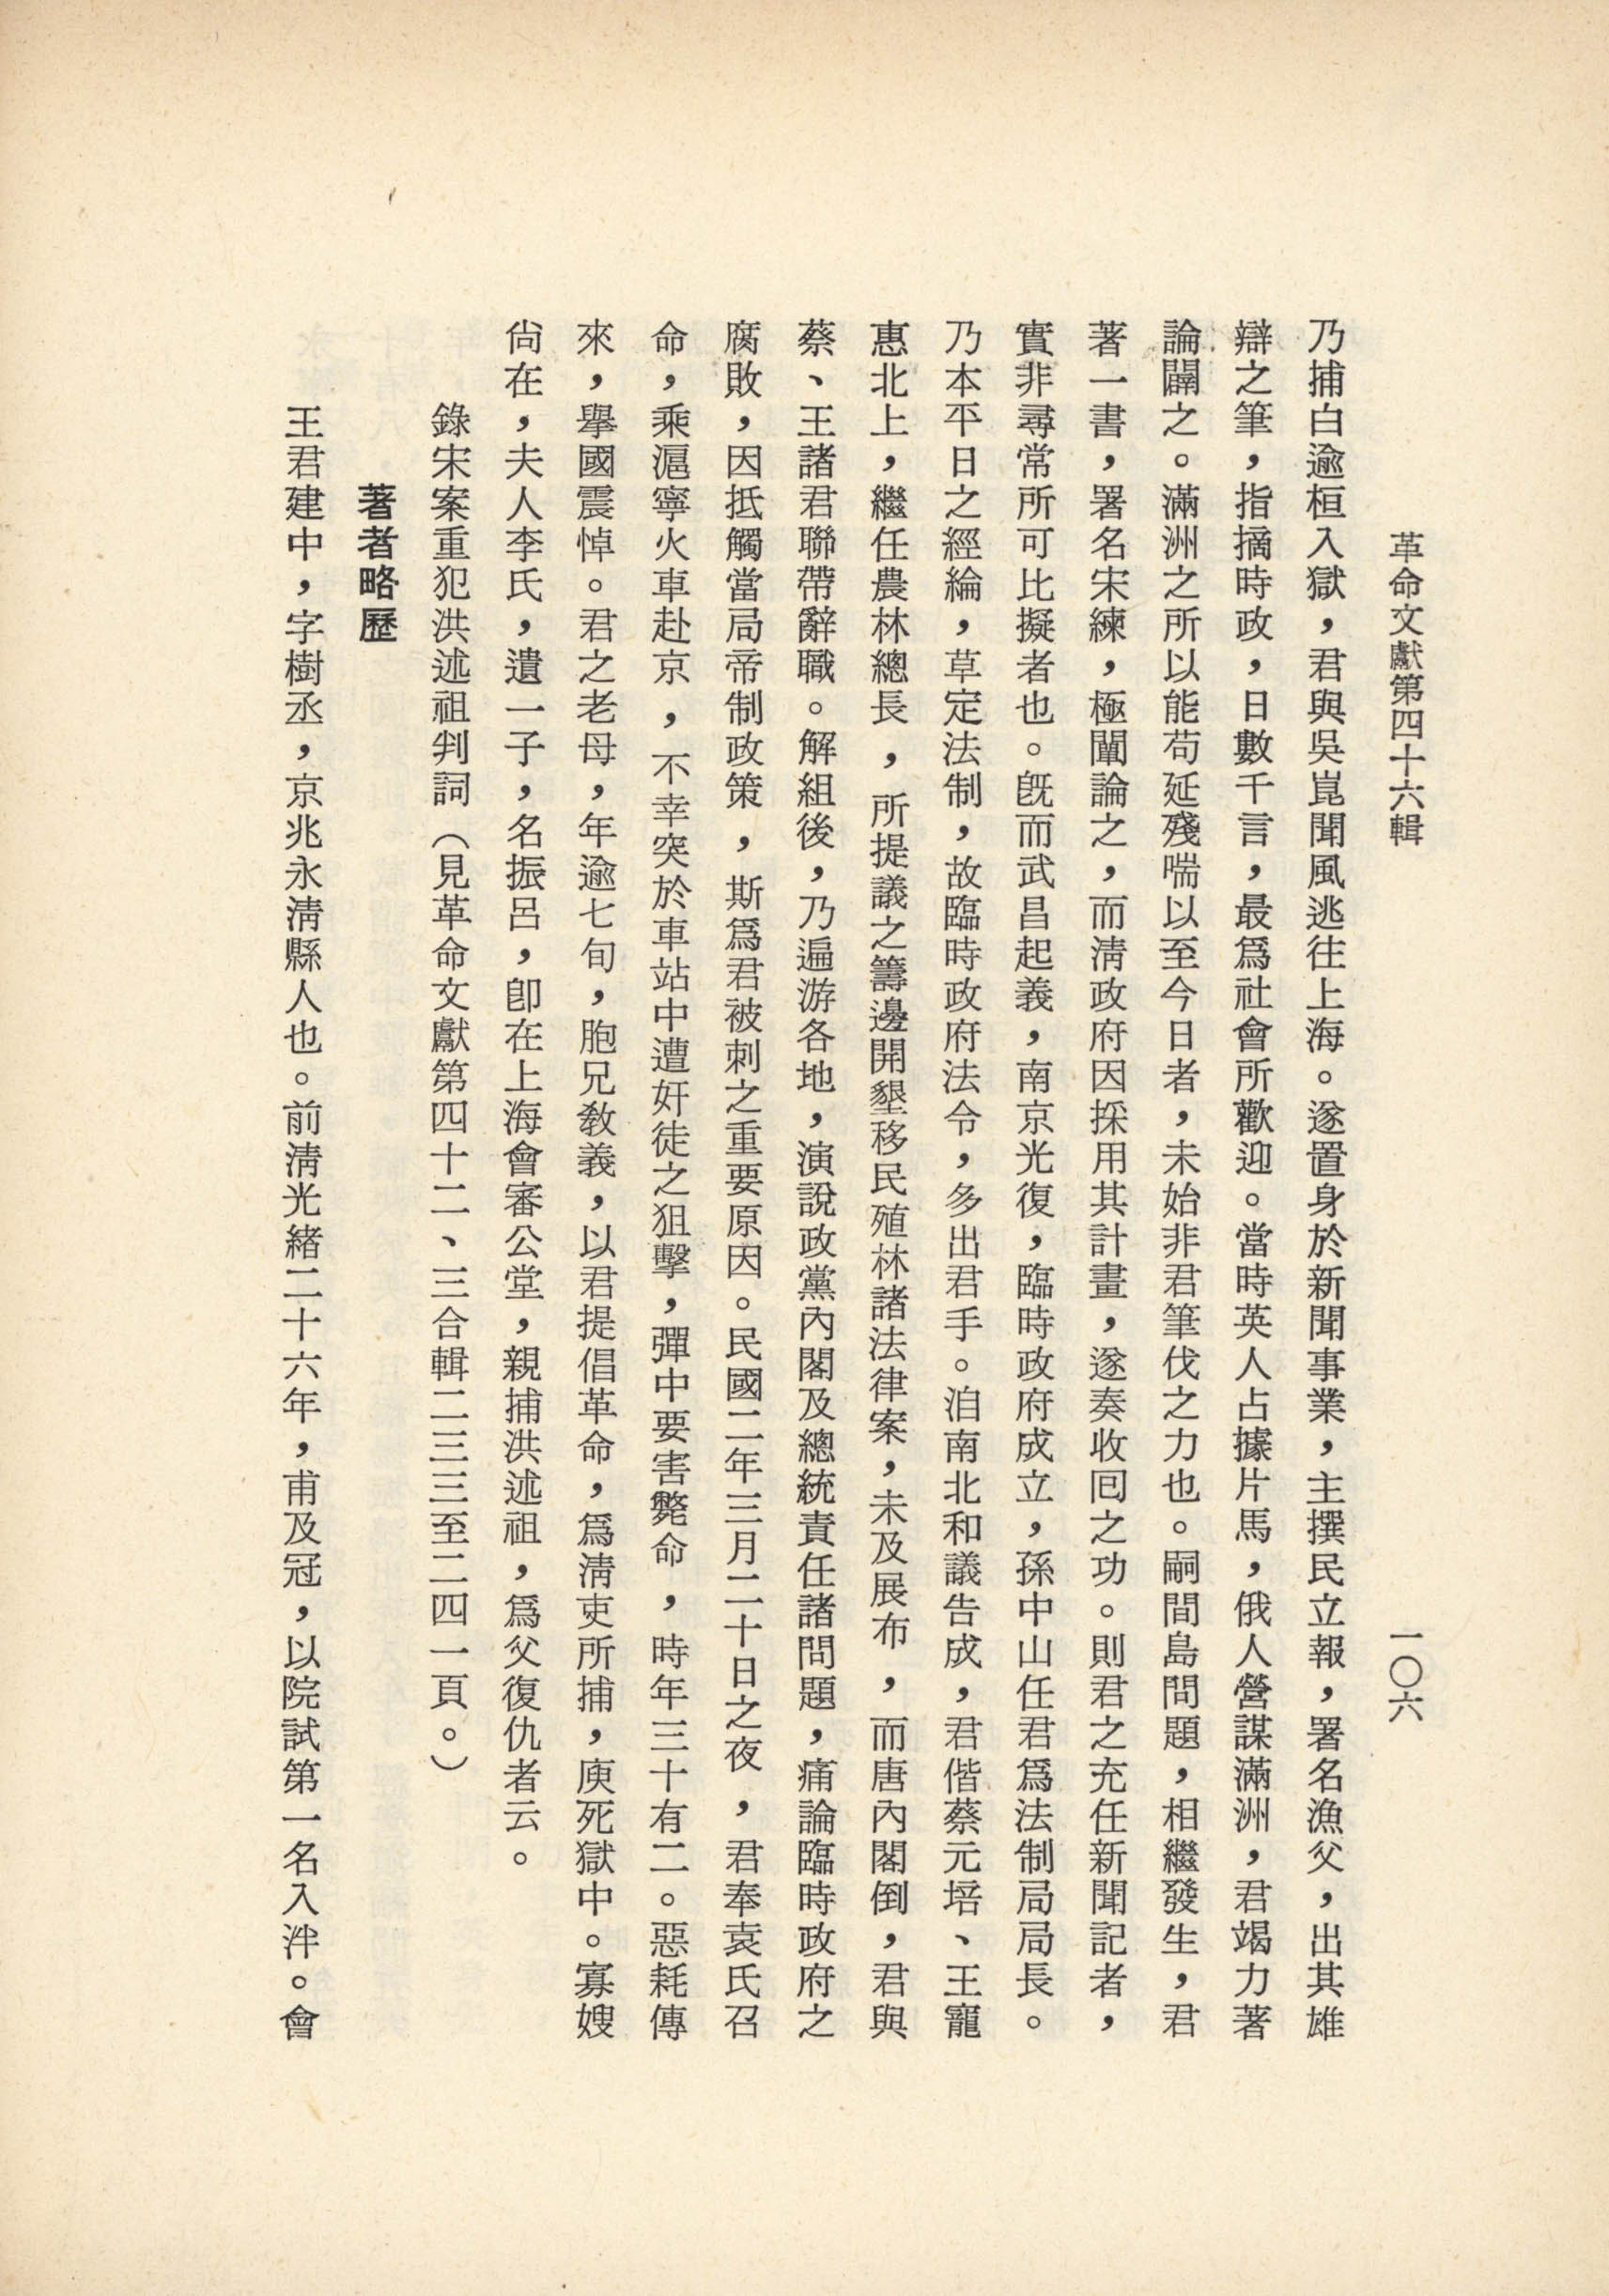 革命文獻第四十六輯
一〇六
乃捕白逾桓入獄，君與吳崑聞風逃往上海。遂置身於新聞事業，主撰民立報，署名漁父，出其雄
辯之筆，指摘時政，日數千言，最爲社會所歡迎。當時英人占據片馬，俄人營謀滿洲，君竭力著
論闢之。滿洲之所以能苟延殘喘以至今日者，未始非君筆伐之力也。嗣間島問題，相繼發生，君
著一書，署名宋練，極闡論之，而淸政府因採用其計畫，遂奏收囘之功。則君之充任新聞記者，
實非尋常所可比擬者也。旣而武昌起義，南京光復，臨時政府成立，孫中山任君爲法制局局長。
乃本平日之經綸，草定法制，故臨時政府法令，多出君手。洎南北和議告成，君偕蔡元培、王寵
惠北上，繼任農林總長，所提議之籌邊開墾移民殖林諸法律案，未及展布，而唐內閣倒，君與
蔡、王諸君聯帶辭職。解組後，乃遍游各地，演說政黨內閣及總統責任諸問題，痛論臨時政府之
腐敗，因抵觸當局帝制政策，斯爲君被刺之重要原因。民國二年三月二十日之夜，君奉袁氏召
命，乘滬寧火車赴京，不幸突於車站中遭奸徒之狙擊，彈中要害斃命，時年三十有二。惡耗傳
來，擧國震悼。君之老母，年逾七旬，胞兄敎義，以君提倡革命，爲淸吏所捕，庾死獄中。寡嫂
尙在，夫人李氏，遺一子，名振呂，卽在上海會審公堂，親捕洪述祖，爲父復仇者云。
錄宋案重犯洪述祖判詞（見革命文獻第四十二、三合輯二三三至二四一頁。）
著者略歷
王君建中，字樹丞，京兆永淸縣人也。前淸光緖二十六年，甫及冠，以院試第一名入泮。會